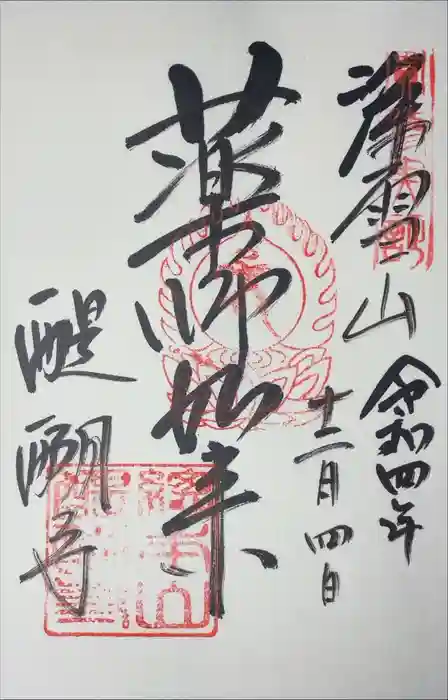 深雪山
令和四年
十二月四日
薬師如来
醍醐寺